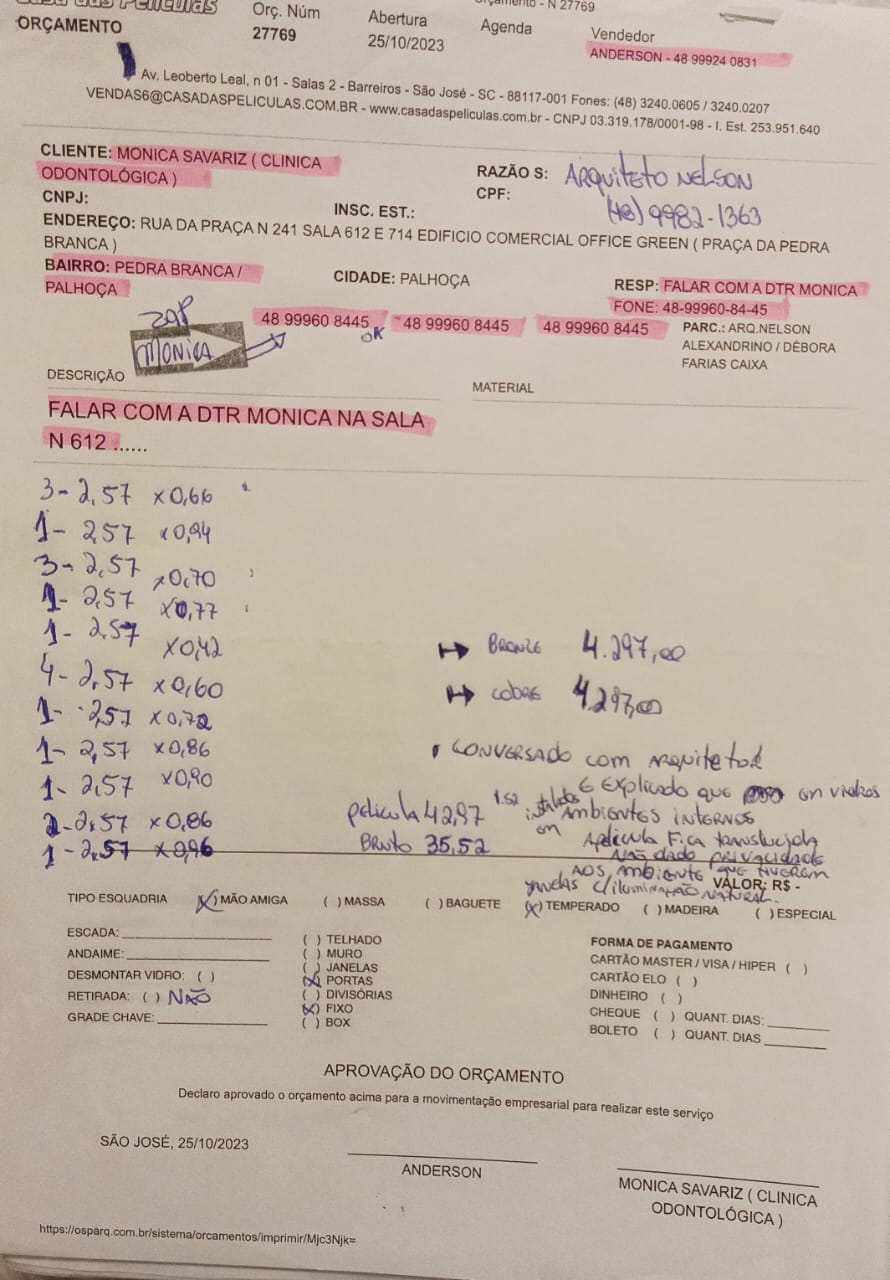 Casa das Películas
ORÇAMENTO
Orç. Núm
27769
Abertura
25/10/2023
Orçamento - N 27769
Agenda
Vendedor
ANDERSON - 48 99924 0831
Av. Leoberto Leal, n 01 - Salas 2 - Barreiros - São José - SC - 88117-001 Fones: (48) 3240.0605 / 3240.0207
VENDAS6@CASADASPELICULAS.COM.BR - www.casadaspeliculas.com.br - CNPJ 03.319.178/0001-98 - I. Est. 253.951.640
CLIENTE: MONICA SAVARIZ ( CLINICA
ODONTOLÓGICA )
RAZÃO S: ARQUITETO NELSON
CNPJ:
INSC. EST.:
CPF: (48) 9982-1363
ENDEREÇO: RUA DA PRAÇA N 241 SALA 612 E 714 EDIFICIO COMERCIAL OFFICE GREEN ( PRAÇA DA PEDRA
BRANCA )
BAIRRO: PEDRA BRANCA /
PALHOÇA
CIDADE: PALHOÇA
RESP: FALAR COM A DTR MONICA
FONE: 48-99960-84-45
zap
MONICA
48 99960 8445
OK
48 99960 8445
48 99960 8445
PARC.: ARQ.NELSON
ALEXANDRINO / DÉBORA
FARIAS CAIXA
DESCRIÇÃO
MATERIAL
FALAR COM A DTR MONICA NA SALA
N 612 ......
3- 2,57 x0,66
1- 2,57 x0,94
3- 2,57 x0,70
1- 2,57 x0,77
1- 2,57 x0,42
4- 2,57 x0,60
1- 2,57 x0,72
1- 2,57 x0,86
1- 2,57 x0,90
2- 2,57 x0,86
1- 2,57 x0,96
BRONZE 4.297,00
COBRE 4.297,00
CONVERSADO COM ARQUITETO
E EXPLICADO QUE em vidros
instalados
em AMBIENTES INTERNOS
A película Fica translucida
NÃO dado privacidade
AOS AMBIENTE QUE TIVEREM
janelas c/iluminação NATURAL.
película 42,97 1.52
BRUTO 35,52
VALOR: R$ -
TIPO ESQUADRIA
(X) MÃO AMIGA ( ) MASSA ( ) BAGUETE (X) TEMPERADO ( ) MADEIRA ( ) ESPECIAL
ESCADA:
ANDAIME:
DESMONTAR VIDRO: ( )
RETIRADA: ( ) NÃO
GRADE CHAVE:
( ) TELHADO
( ) MURO
( ) JANELAS
(X) PORTAS
( ) DIVISÓRIAS
(X) FIXO
( ) BOX
FORMA DE PAGAMENTO
CARTÃO MASTER / VISA / HIPER ( )
CARTÃO ELO ( )
DINHEIRO ( )
CHEQUE ( ) QUANT. DIAS:
BOLETO ( ) QUANT. DIAS
APROVAÇÃO DO ORÇAMENTO
Declaro aprovado o orçamento acima para a movimentação empresarial para realizar este serviço
SÃO JOSÉ, 25/10/2023
ANDERSON
MONICA SAVARIZ ( CLINICA
ODONTOLÓGICA )
https://osparq.com.br/sistema/orcamentos/imprimir/Mjc3Njk=